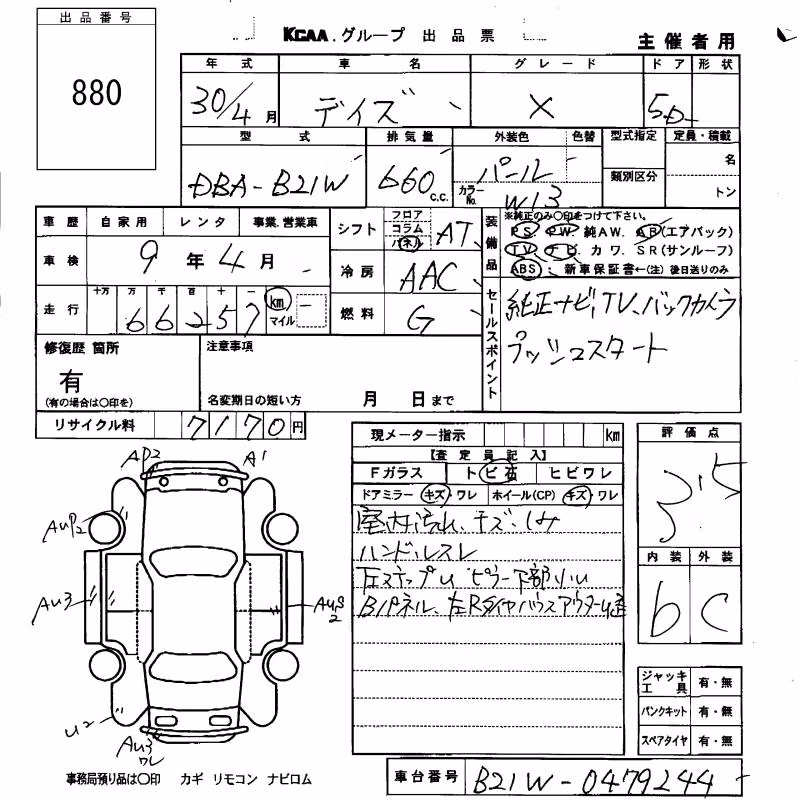 出品番号
880
KCAA.グループ 出品票
主催者用
年式 車名 グレード ドア 形状
30/4月 デイズ X 5D
型式 排気量 外装色 色替 型式指定 定員・積載
DBA-B21W 660 c.c. パール
カラーNo. W13
類別区分
名
トン
車歴 自家用 レンタ 事業.営業車
車検 9年4月
走行 十万 万 千 百 十
66257 km マイル
シフト フロア コラム パネル AT
冷房 AAC
燃料 G
装備品
※純正のみ〇印をつけて下さい。
PS PW 純AW. AB(エアバック)
TV ナビ カワ SR(サンルーフ)
ABS 新車保証書←(注)後日送りのみ
セールスポイント
純正ナビ、TV、バックカメラ
プッシュスタート
修復歴 箇所
有
(有の場合は〇印を)
注意事項
名変期日の短い方 月 日まで
リサイクル料 7170円
現メーター指示 km
【査定員記入】
Fガラス トビ石 ヒビワレ
ドアミラー キズ・ワレ ホイール(CP) キズ・ワレ
室内汚れ、キズ、しみ
ハンドルスレ
左ステップU ピラー下部小U
Bパネル、左Rタイヤハウスアウター
評価点
3.5
内装 外装
b C
ジャッキ工具 有・無
パンクキット 有・無
スペアタイヤ 有・無
AP2 A1
AUP2
AU3
AUS2
U2
AU3
ワレ
事務局預り品は〇印 カギ リモコン ナビロム
車台番号 B21W-0479244